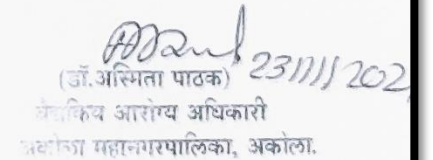 23/11/202
(डॉ.अस्मिता पाठक)
वैद्यकिय आरोग्य अधिकारी
अकोला महानगरपालिका, अकोला.